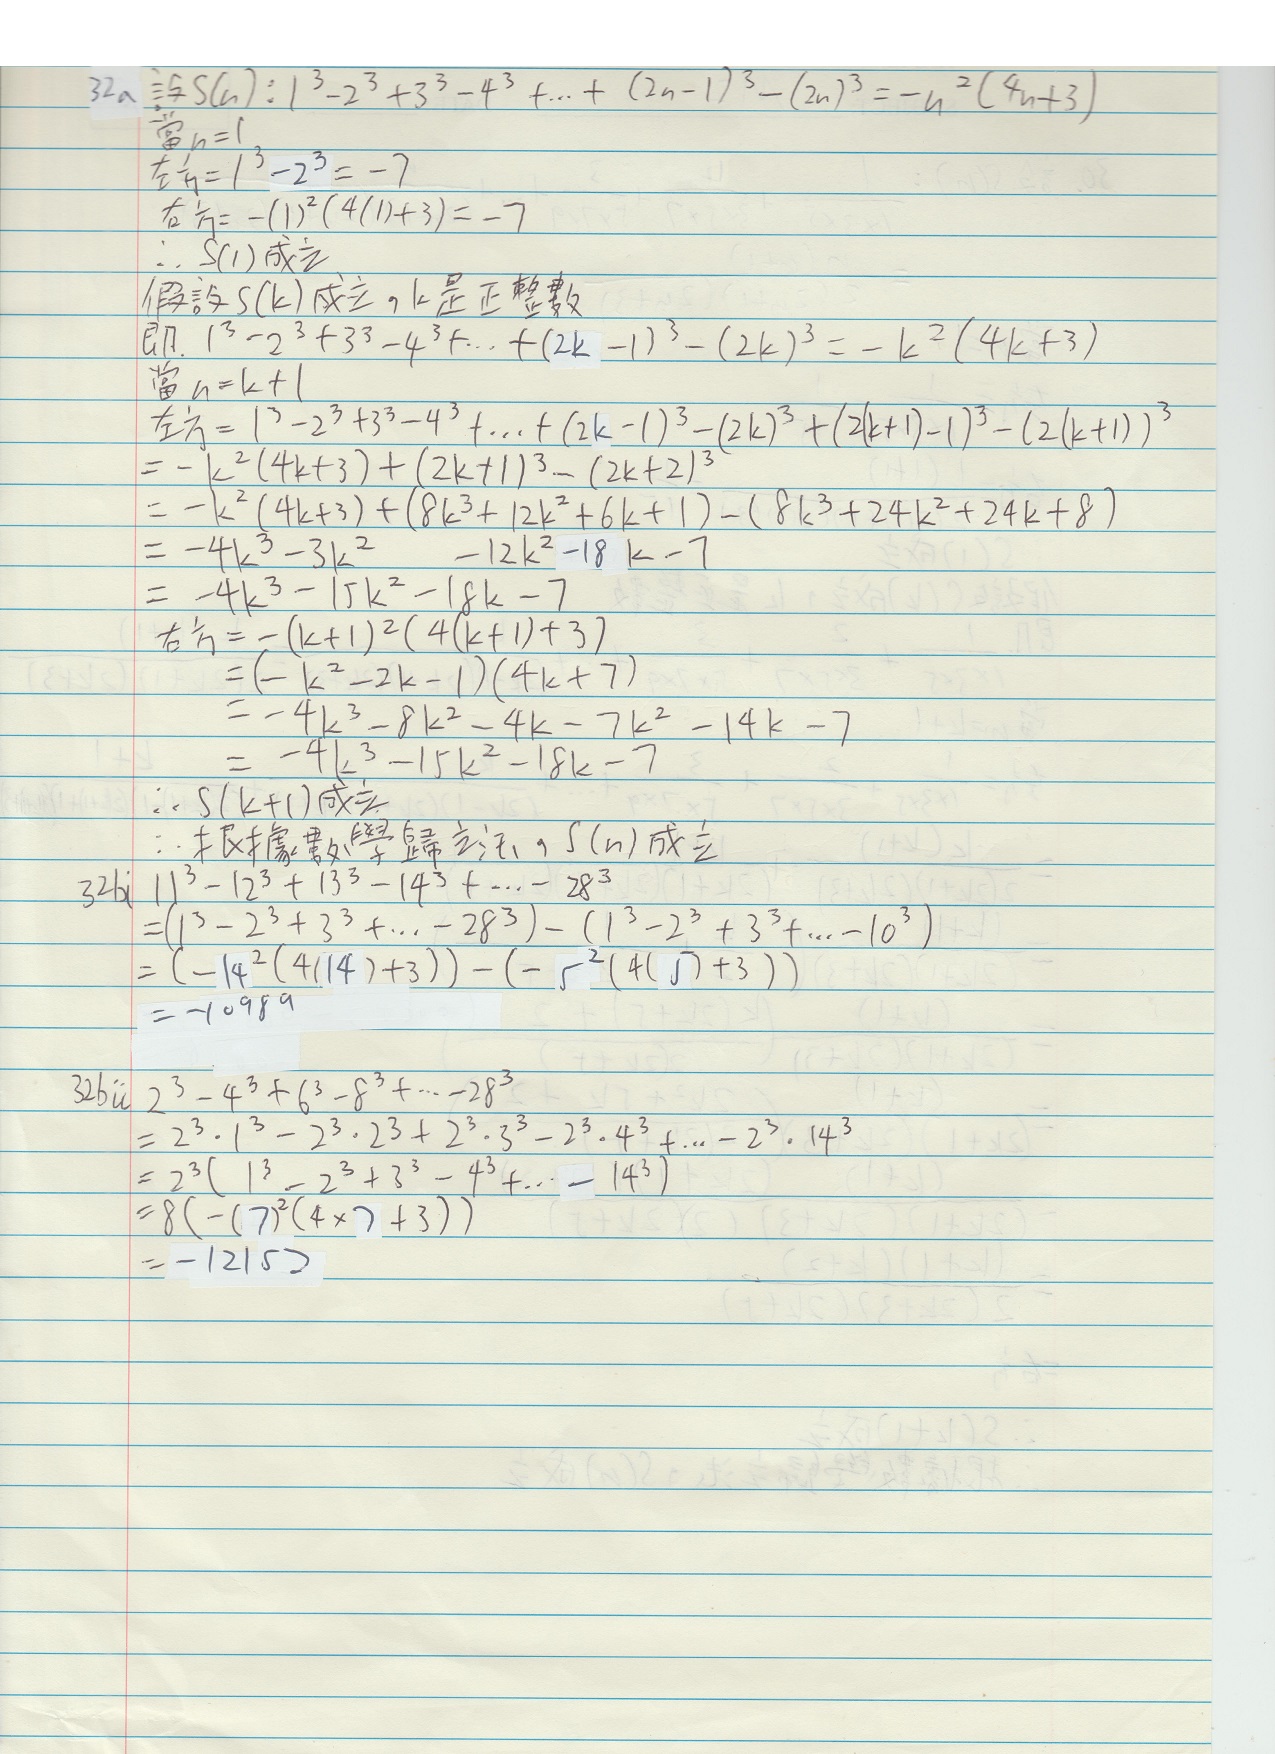 32a 設S(n):1³-2³+3³-4³+...+(2n-1)³-(2n)³=-n²(4n+3)
當n=1
左方=1³-2³=-7
右方=-(1)²(4(1)+3)=-7
∴S(1)成立
假設S(k)成立,k是正整數
即1³-2³+3³-4³+...+(2k-1)³-(2k)³=-k²(4k+3)
當n=k+1
左方=1³-2³+3³-4³+...+(2k-1)³-(2k)³+(2(k+1)-1)³-(2(k+1))³
=-k²(4k+3)+(2k+1)³-(2k+2)³
=-k²(4k+3)+(8k³+12k²+6k+1)-(8k³+24k²+24k+8)
=-4k³-3k² -12k²-18k-7
=-4k³-15k²-18k-7
右方=-(k+1)²(4(k+1)+3)
=(-k²-2k-1)(4k+7)
=-4k³-8k²-4k-7k²-14k-7
=-4k³-15k²-18k-7
∴S(k+1)成立
∴根據數學歸立法,S(n)成立
32bi 11³-12³+13³-14³+...-28³
=(1³-2³+3³+...-28³)-(1³-2³+3³+...-10³)
=(-14²(4(14)+3))-(-5²(4(5)+3))
=-10989
32bii 2³-4³+6³-8³+...-28³
=2³·1³-2³·2³+2³·3³-2³·4³+...-2³·14³
=2³(1³-2³+3³-4³+...-14³)
=8(-(7)²(4×7+3))
=-12152